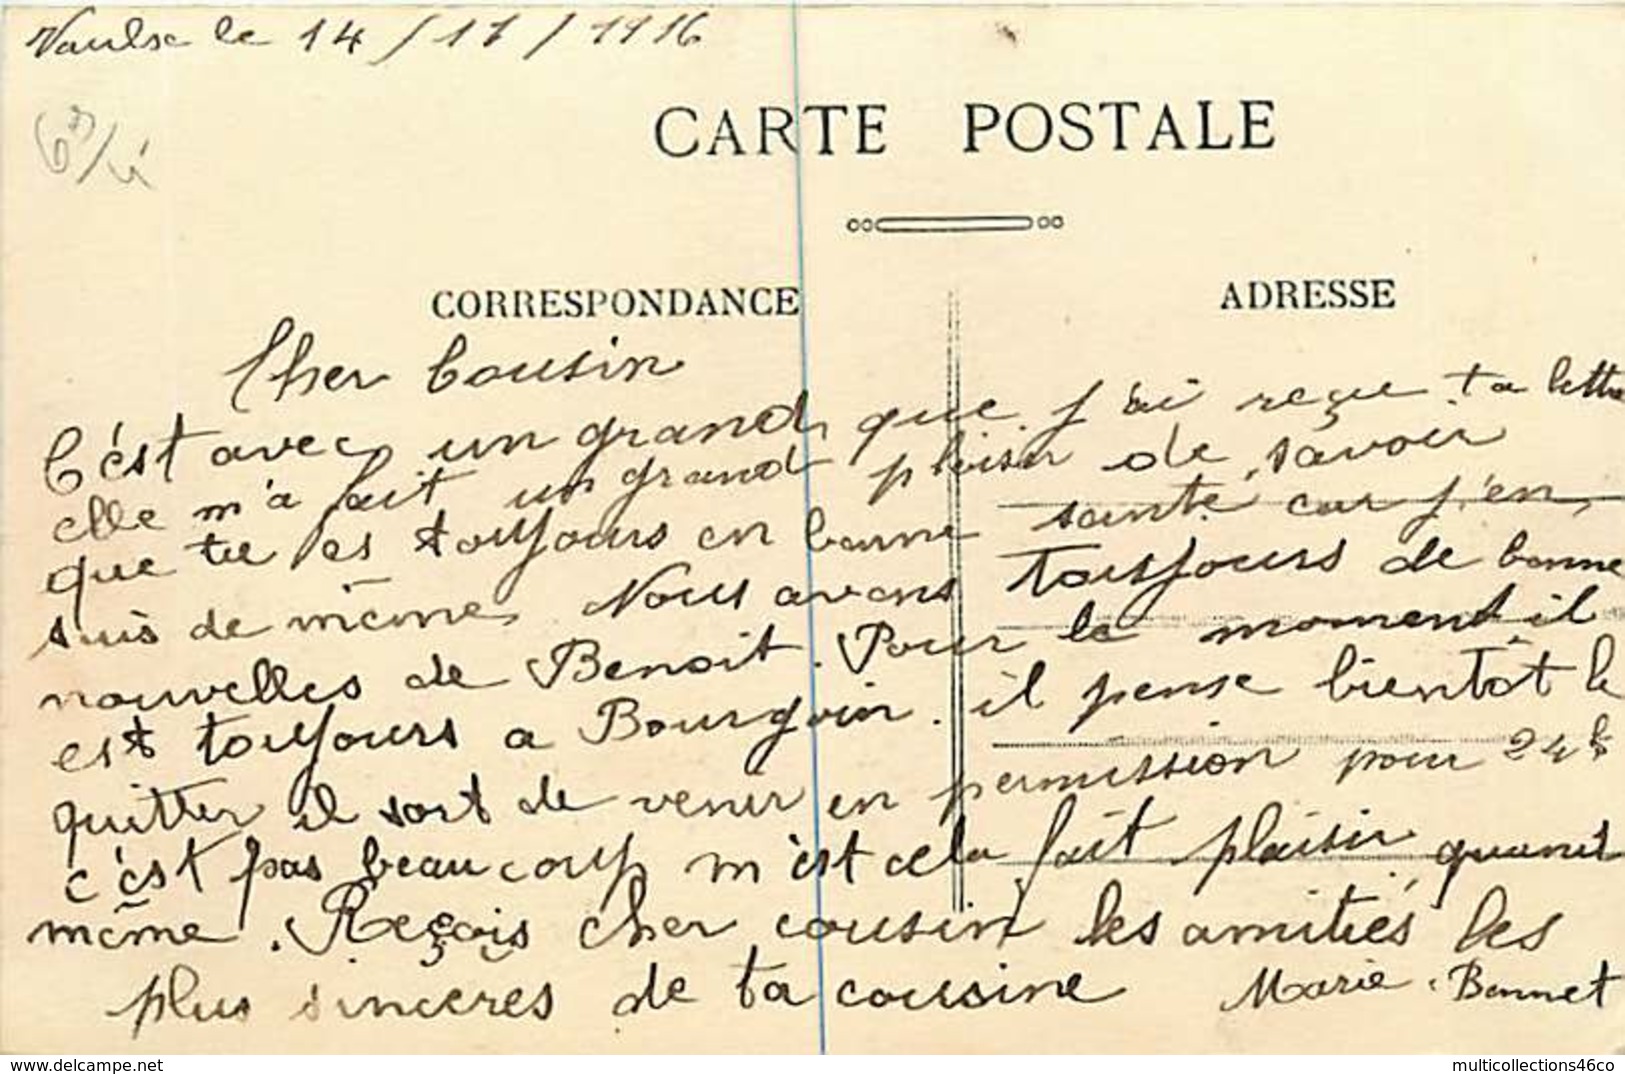 le 14 / 11 / 1916
CARTE POSTALE
CORRESPONDANCE
ADRESSE
Cher Cousin
C'est avec un grand que j'ai reçue ta lettre
elle m'a fait un grand plaisir de savoir
que tu es toujours en bonne santé car j'en
suis de même Nous avons toujours de bonne
nouvelles de Benoit. Pour le moment il
est toujours a Bourgoin. il pense bientôt le
quitter il sort de venir en permission pour 24h
c'est pas beaucoup m'est cela fait plaisir quand
même. Reçois cher cousin les amitiés les
plus sincères de ta cousine Marie Bonnet
https://www.delcampe.net
multicollections46co